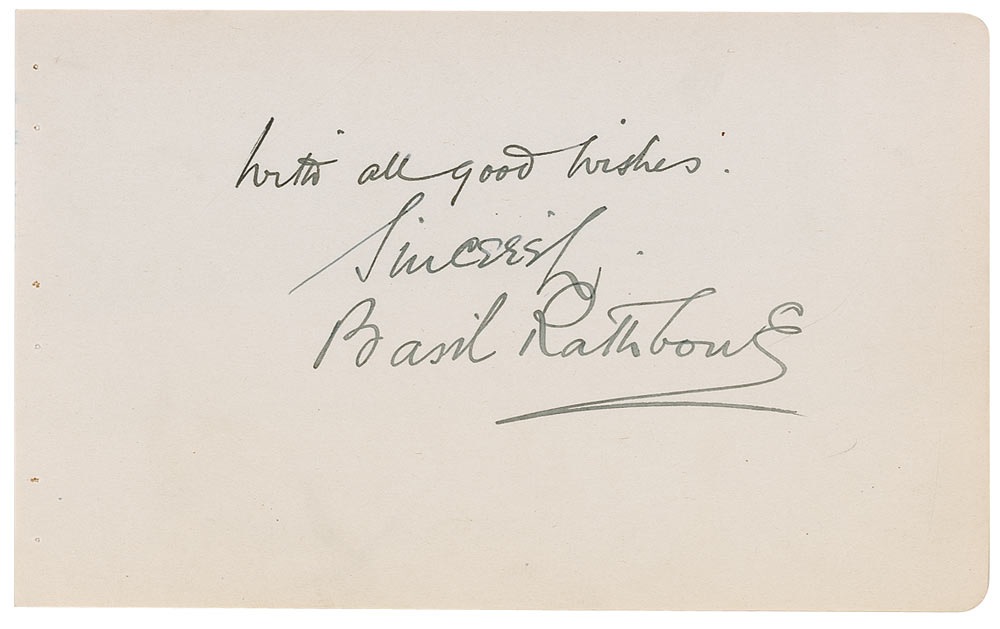 With all good wishes.
Sincerely.
Basil Rathbone